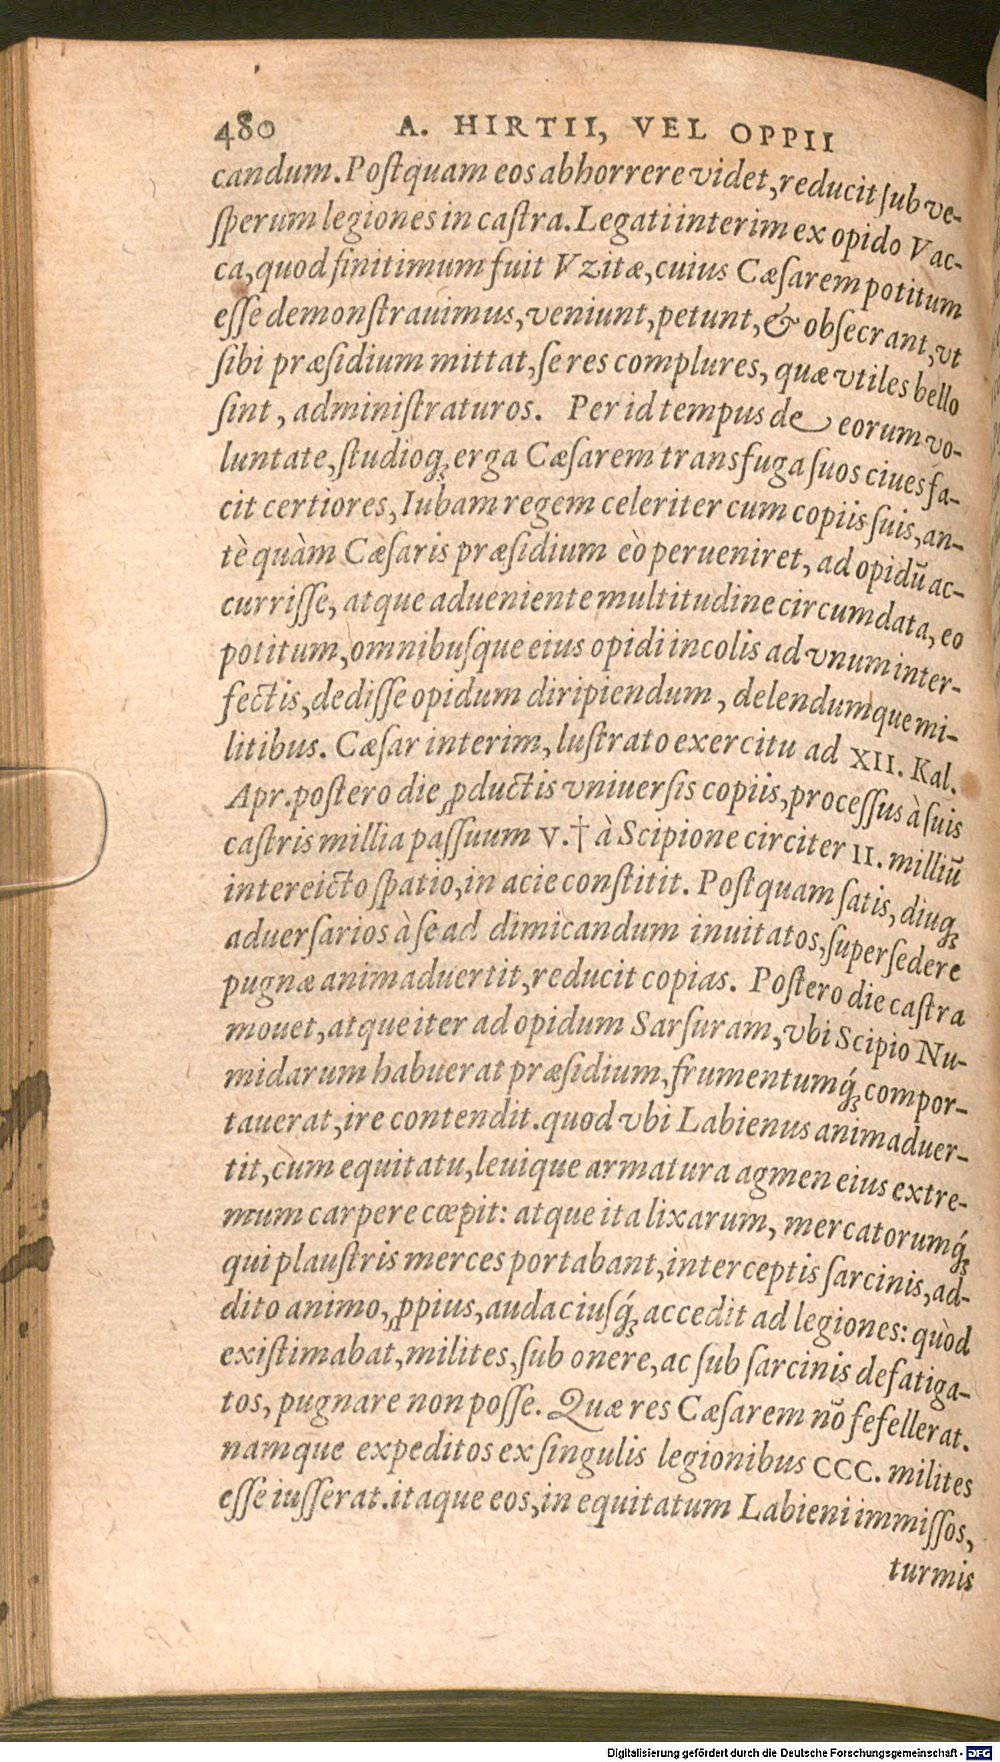 480 A. HIRTII, VEL OPPII
candum. Postquam eos abhorrere videt, reducit sub ve-
sperum legiones in castra. Legati interim ex opido Vac-
ca, quod finitimum fuit Vzitæ, cuius Cæsarem potitum
esse demonstrauimus, veniunt, petunt, & obsecrant, vt
sibi præsidium mittat, se res complures, quæ vtiles bello
sint, administraturos. Per id tempus de eorum vo-
luntate, studioq́; erga Cæsarem transfuga suos ciues fa-
cit certiores, Iubam regem celeriter cum copiis suis, an-
tè quàm Cæsaris præsidium eò perueniret, ad opidū ac-
currisse, atque adueniente multitudine circumdata, eo
potitum, omnibusque eius opidi incolis ad vnum inter-
fectis, dedisse opidum diripiendum, delendumque mi-
litibus. Cæsar interim, lustrato exercitu ad XII. Kal.
Apr. postero die ꝓductis vniuersis copiis, processus à suis
castris millia passuum V.† à Scipione circiter II. milliū
intereicto spatio, in acie constitit. Postquam satis, diuq;
aduersarios à se ad dimicandum inuitatos, supersedere
pugnæ animaduertit, reducit copias. Postero die castra
mouet, atque iter ad opidum Sarsuram, vbi Scipio Nu-
midarum habuerat præsidium, frumentumq́; compor-
tauerat, ire contendit. quod vbi Labienus animaduer-
tit, cum equitatu, leuique armatura agmen eius extre-
mum carpere cœpit: atque ita lixarum, mercatorumq́;
qui plaustris merces portabant, interceptis sarcinis, ad-
dito animo, ꝓpius, audaciusq́; accedit ad legiones: quòd
existimabat, milites, sub onere, ac sub sarcinis defatiga-
tos, pugnare non posse. Quæ res Cæsarem nō fefellerat.
namque expeditos ex singulis legionibus CCC. milites
esse iusserat. itaque eos, in equitatum Labieni immissos,
turmis
Digitalisierung gefördert durch die Deutsche Forschungsgemeinschaft - DFG